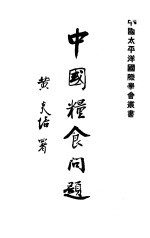 中國太平洋國際學會叢書
中國糧食問題
黄炎培署